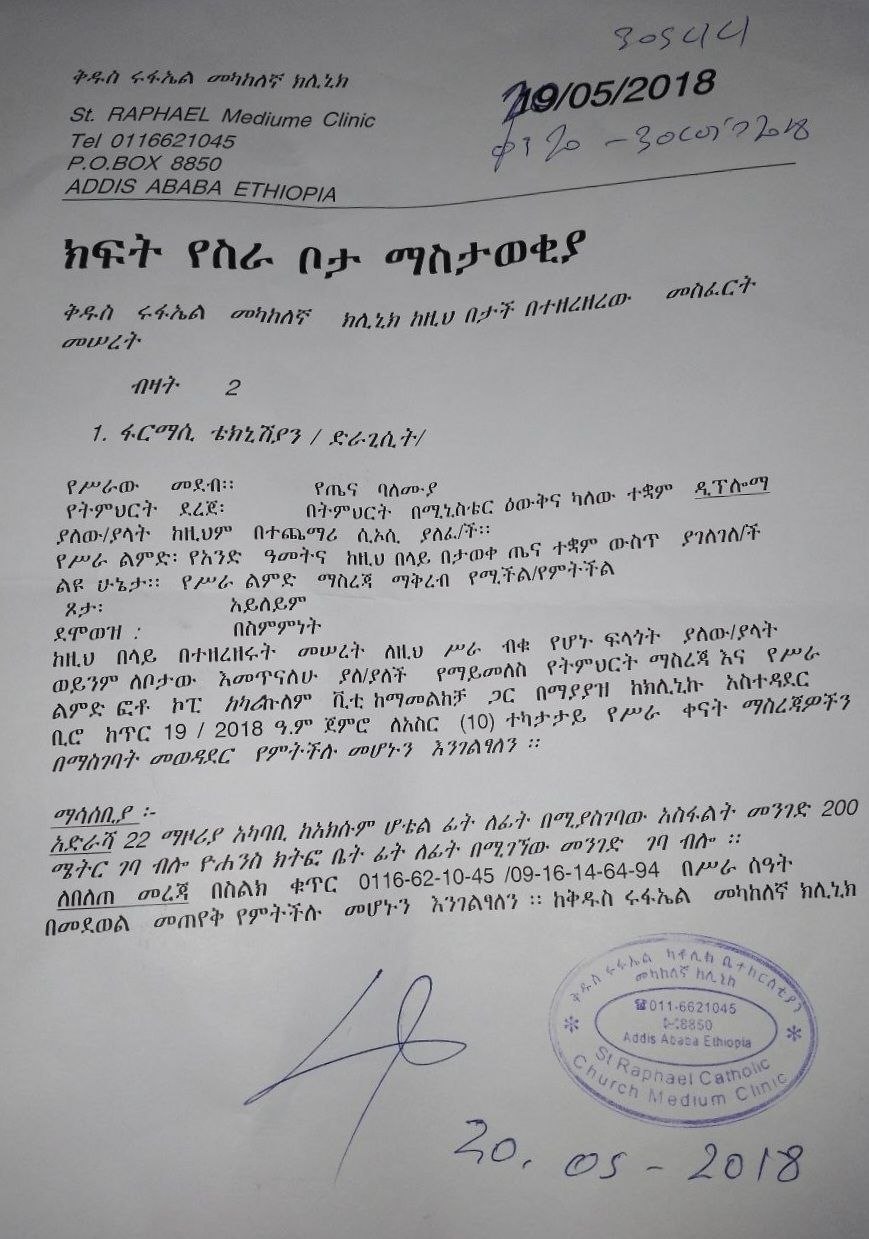 ቅዱስ ሩፋኤል መካከለኛ ክሊኒክ
St. RAPHAEL Mediume Clinic
Tel 0116621045
P.O.BOX 8850
ADDIS ABABA ETHIOPIA
19/05/2018
2018
ክፍት የስራ ቦታ ማስታወቂያ
ቅዱስ ሩፋኤል መካከለኛ ክሊኒክ ከዚህ በታች በተዘረዘረው መስፈርት
መሠረት
ብዛት 2
1. ፋርማሲ ቴክኒሽያን / ድራጊሲት/
የሥራው መደብ፡፡ የጤና ባለሙያ
የትምህርት ደረጀ፡ በትምህርት በሚኒስቴር ዕውቅና ካለው ተቋም ዲፕሎማ
ያለው/ያላት ከዚህም በተጨማሪ ሲኦሲ ያለፈ/ች፡፡
የሥራ ልምድ፡ የአንድ ዓመትና ከዚህ በላይ በታወቀ ጤና ተቋም ውስጥ ያገለገለ/ች
ልዩ ሁኔታ፡፡ የሥራ ልምድ ማስረጃ ማቅረብ የሚችል/የምትችል
ጾታ፡ አይለይም
ደሞወዝ : በስምምነት
ከዚህ በላይ በተዘረዘሩት መሠረት ለዚህ ሥራ ብቁ የሆኑ ፍላጎት ያለው/ያላት
ወይንም ለቦታው እመጥናለሁ ያለ/ያለች የማይመለስ የትምህርት ማስረጃ እና የሥራ
ልምድ ፎቶ ኮፒ ከካሪኩለም ቪቲ ከማመልከቻ ጋር በማያያዝ ከክሊኒኩ አስተዳደር
ቢሮ ከጥር 19 / 2018 ዓ.ም ጀምሮ ለአስር (10) ተካታታይ የሥራ ቀናት ማስረጃዎችን
በማስገባት መወዳደር የምትችሉ መሆኑን እንገልፃለን ፡፡
ማሳሰቢያ ፡-
አድራሻ 22 ማዞሪያ አካባቢ ከአክሱም ሆቴል ፊት ለፊት በሚያስገባው አስፋልት መንገድ 200
ሜትር ገባ ብሎ ዮሐንስ ክትፎ ቤት ፊት ለፊት በሚገኘው መንገድ ገባ ብሎ ፡፡
ለበለጠ መረጃ በስልክ ቁጥር 0116-62-10-45 /09-16-14-64-94 በሥራ ሰዓት
በመደወል መጠየቅ የምትችሉ መሆኑን እንገልፃለን ፡፡ ከቅዱስ ሩፋኤል መካከለኛ ክሊኒክ
ቅዱስ ሩፋኤል ካቶሊክ ቤተክርስቲያን
መካከለኛ ክሊኒክ
☎011-6621045
8850
Addis Ababa Ethiopia
St Raphael Catholic
Church Medium Clinic
20. 05 - 2018